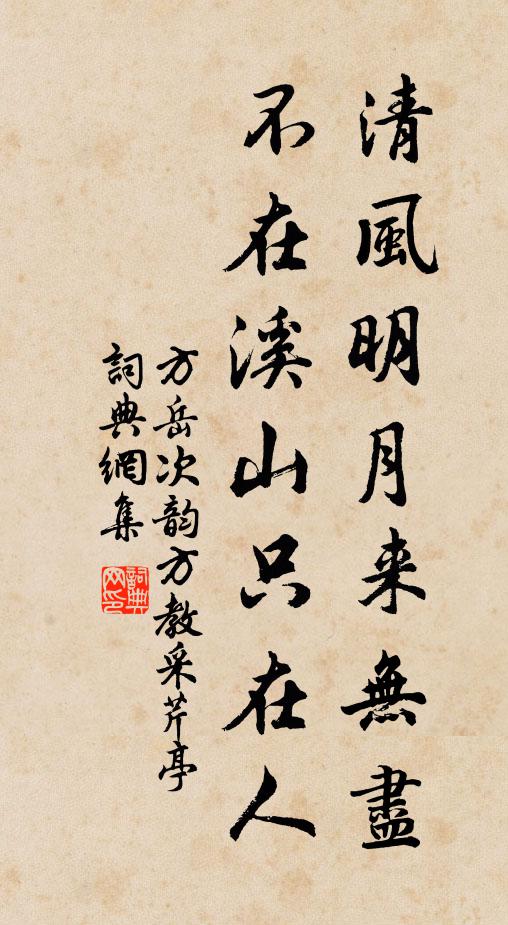 清風明月来無盡
不在溪山只在人
方岳次韵方教采芹亭
詞典網集
詞典网印